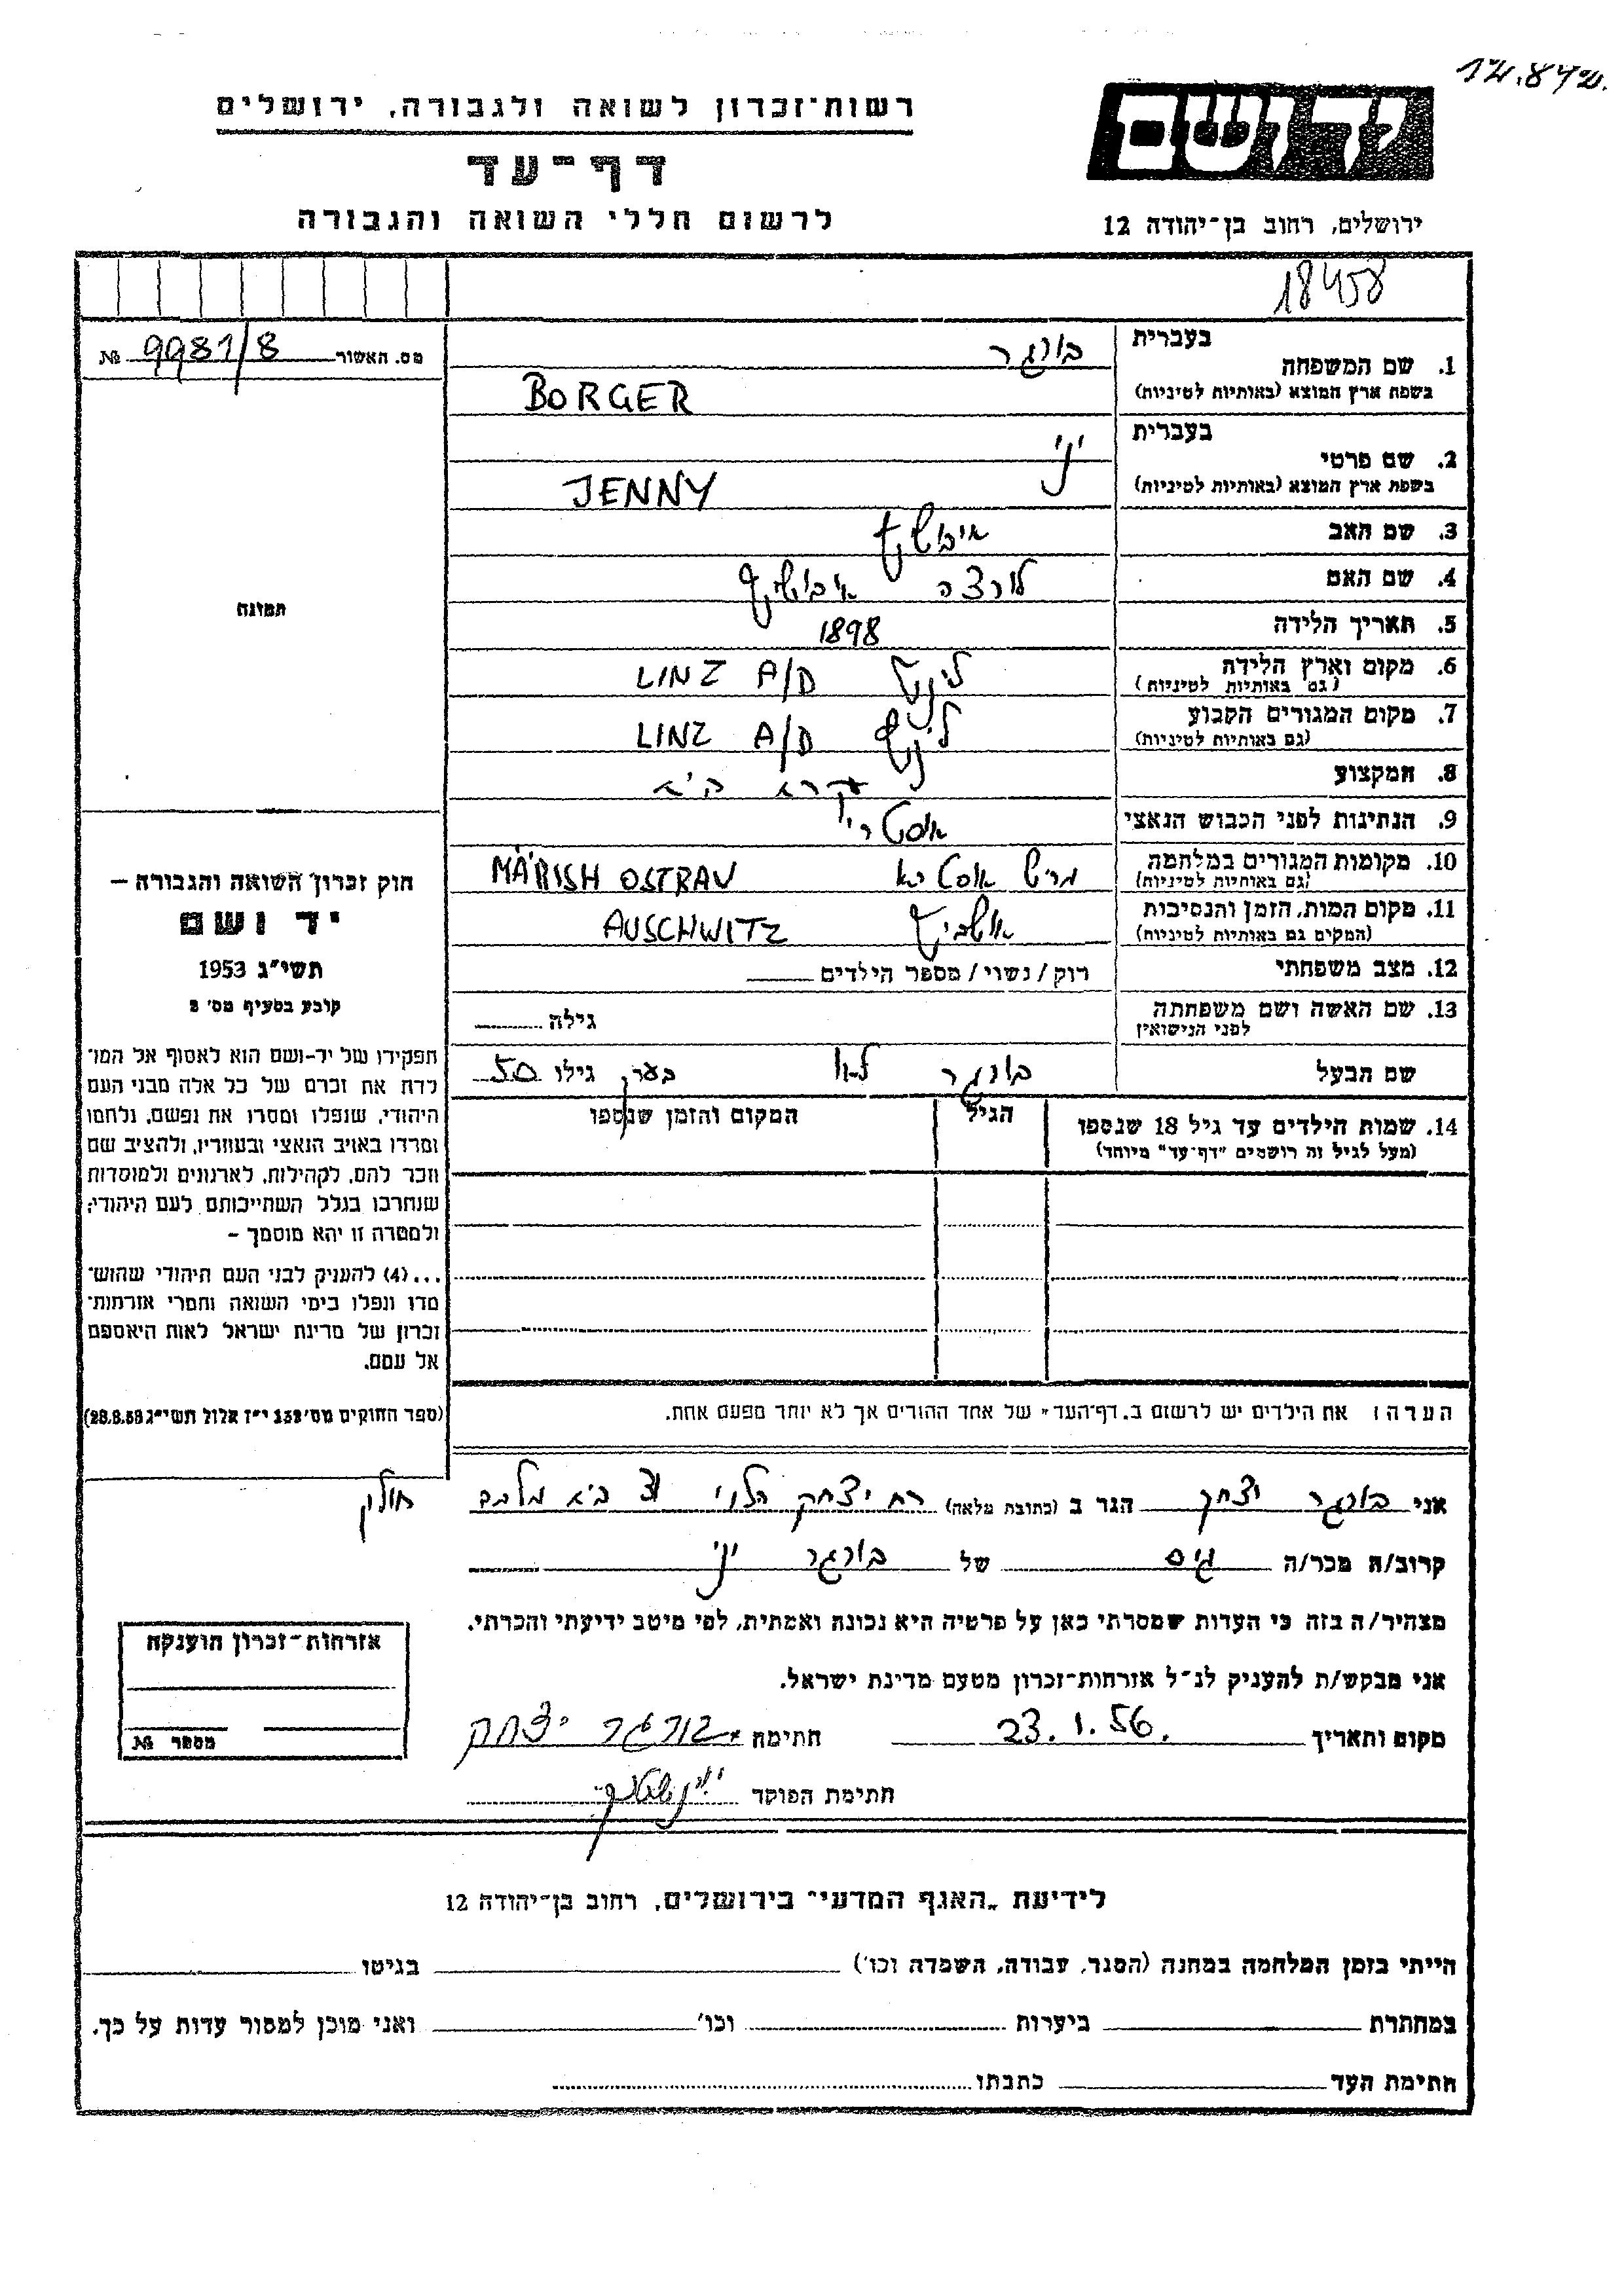 רשות־זכרון לשואה ולגבורה, ירושלים
דף־עד
לרשום חללי השואה והגבורה
יד ושם
ירושלים, רחוב בן־יהודה 12
18458
מס. האשור 9981/8 №
בעברית
1. שם המשפחה בורגר
בשפת ארץ המוצא (באותיות לטיניות) BORGER
בעברית
2. שם פרטי יני
בשפת ארץ המוצא (באותיות לטיניות) JENNY
3. שם האב
4. שם האם
5. תאריך הלידה 1898
6. מקום וארץ הלידה לינץ LINZ A/D
(גם באותיות לטיניות)
7. מקום המגורים הקבוע לינץ LINZ A/D
(גם באותיות לטיניות)
8. המקצוע עקרת בית
9. הנתינות לפני הכבוש הנאצי אוסטרי
10. מקומות המגורים במלחמה MÄRISH OSTRAV
(גם באותיות לטיניות)
11. מקום המות, הזמן והנסיבות אושביץ AUSCHWITZ
(המקום גם באותיות לטיניות)
12. מצב משפחתי רוק / נשוי / מספר הילדים
13. שם האשה ושם משפחתה
לפני הנישואין גילה
שם הבעל בורגר לאו בערך גילו 50
14. שמות הילדים עד גיל 18 שנספו הגיל המקום והזמן שנספו
(מעל לגיל זה רושמים "דף־עד" מיוחד)
הערה: את הילדים יש לרשום ב„דף־העד" של אחד ההורים אך לא יותר מפעם אחת.
תמונה
חוק זכרון השואה והגבורה —
יד ושם
תשי"ג 1953
קובע בסעיף מס' 2
תפקידו של יד-ושם הוא לאסוף אל המו־
לדת את זכרם של כל אלה מבני העם
היהודי, שנפלו ומסרו את נפשם, נלחמו
ומרדו באויב הנאצי ובעוזריו, ולהציב שם
וזכר להם, לקהילות, לארגונים ולמוסדות
שנחרבו בגלל השתייכותם לעם היהודי;
ולמטרה זו יהא מוסמך —
...(4) להעניק לבני העם היהודי שהוש־
מדו ונפלו בימי השואה והמרי אזרחות־
זכרון של מדינת ישראל לאות היאספם
אל עמם.
(ספר החוקים מס' 132 י"ז אלול תשי"ג 28.8.53)
אני בורגר יצחק הגר ב (כתובת מלאה) רח יצחק הלוי חולון
קרוב/ה מכר/ה גיס של בורגר יני
מצהיר/ה בזה כי העדות שמסרתי כאן על פרטיה היא נכונה ואמתית, לפי מיטב ידיעתי והכרתי.
אני מבקש/ת להעניק לנ"ל אזרחות־זכרון מטעם מדינת ישראל.
מקום ותאריך 23.1.56. חתימה בורגר יצחק
חתימת הפוקד
אזרחות־זכרון הוענקה
מספר №
לידיעת „האגף המדעי" בירושלים, רחוב בן־יהודה 12
הייתי בזמן המלחמה במחנה (הסגר, עבודה, השמדה וכו') בגיטו
במחתרת ביערות וכו' ואני מוכן למסור עדות על כך.
חתימת העד כתבתו